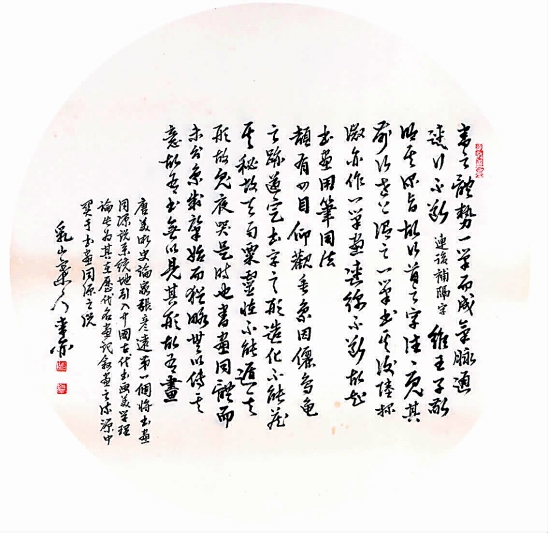 書之體勢一筆而成氣脈通
連行不斷 連後補隔字 維王子敬
明其深旨故行首之字往往其
前行世上謂之一筆書其後陸探
微亦作一筆畫連綿不斷故知
書畫用筆同法
頡有四目仰觀垂象因儷鳥龜
之跡遂定書字之形造化不能藏
其秘故天雨粟靈怪不能遁其
形故鬼夜哭是時也書畫同體而
未分象制肇始而猶略無以傳其
意故有書無以見其形故有畫
唐美術史論家張彥遠第一個將書畫
同源說系統地引入中國古代書畫美學理
論此為其在歷代名畫記敘畫之源流中
關于書畫同源之說
乳山人